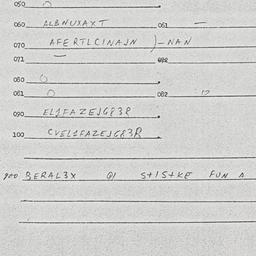 050
060 ALBNUXAXT 061 —
070 AFERTLCINAJN )-NAN
071 — 022
080 0
081 0 082
090 EL1FAZEJG83R
100 CVEL1FAZEJG83R
900 BERAL3X 01 S+IS+KE FUN A